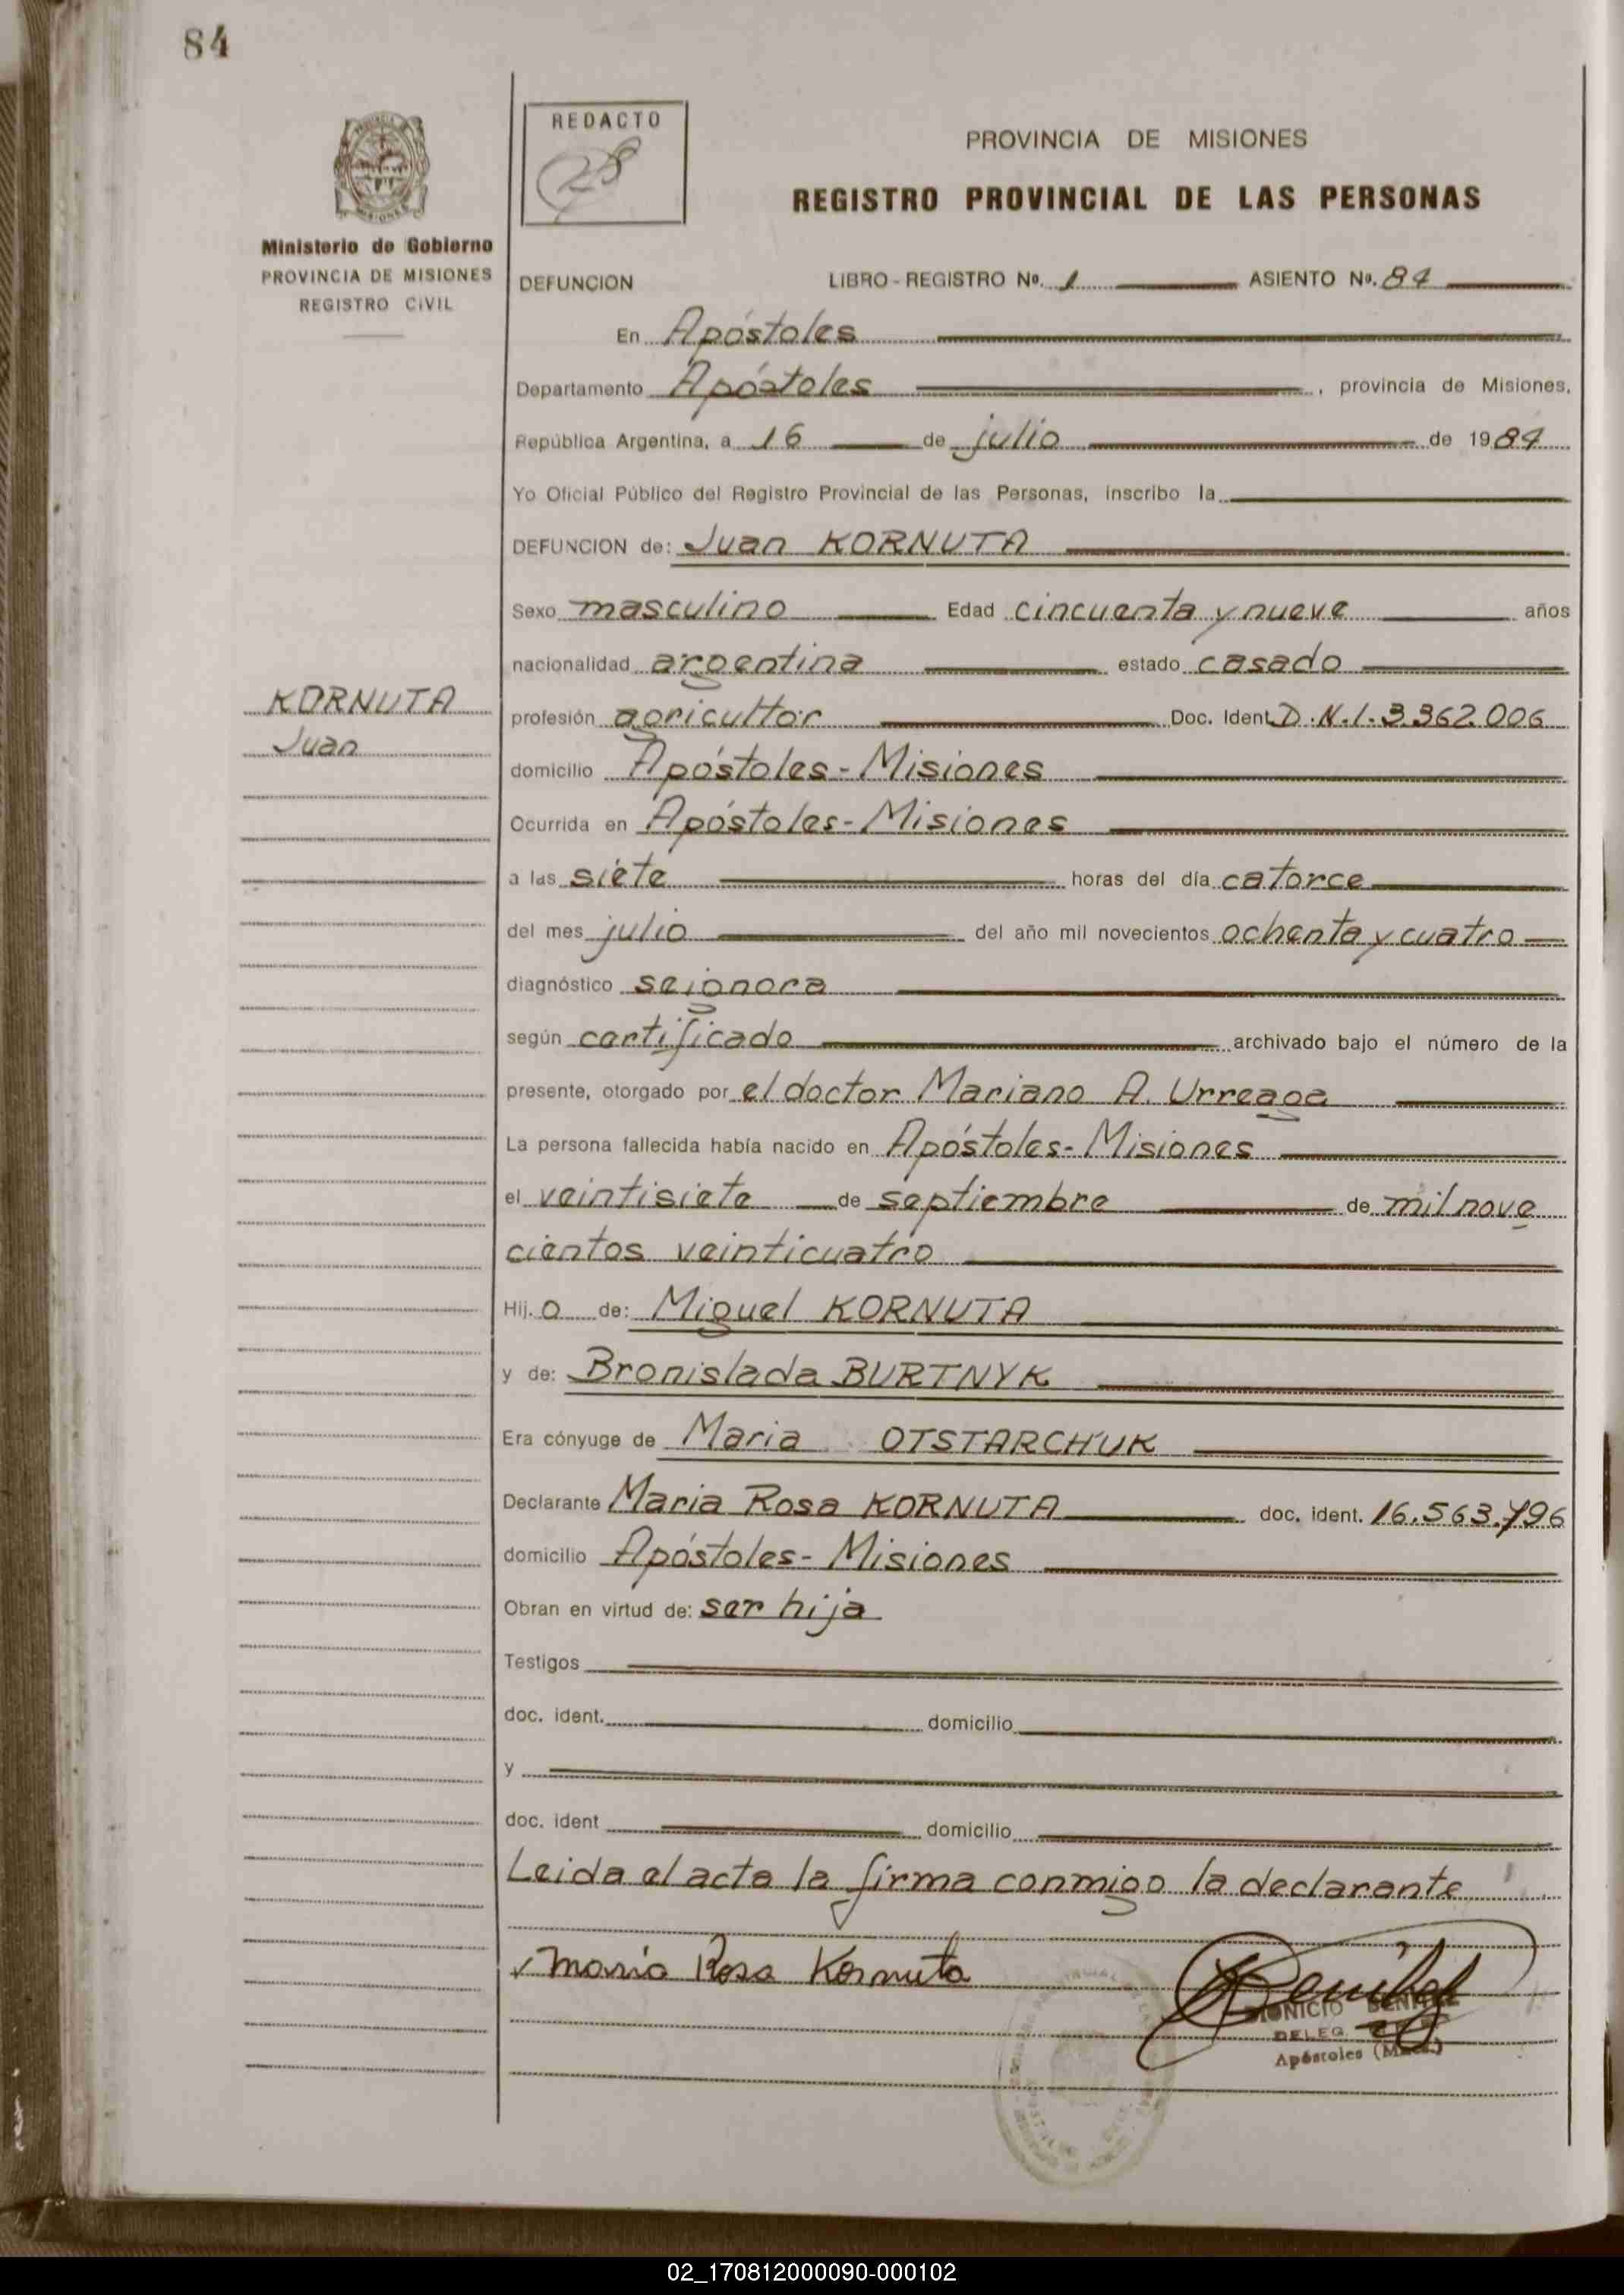 84
REDACTO
28
PROVINCIA DE MISIONES
REGISTRO PROVINCIAL DE LAS PERSONAS
Ministerio de Gobierno
PROVINCIA DE MISIONES
REGISTRO CIVIL
DEFUNCION LIBRO - REGISTRO Nº. 1 ASIENTO Nº. 84
En Apóstoles
Departamento Apóstoles, provincia de Misiones,
República Argentina, a 16 de julio de 1984
Yo Oficial Público del Registro Provincial de las Personas, inscribo la
DEFUNCION de: Juan KORNUTA
Sexo masculino Edad cincuenta y nueve años
nacionalidad argentina estado casado
KORNUTA
Juan
profesión agricultor Doc. Ident D.N.I. 3.362.006
domicilio Apóstoles - Misiones
Ocurrida en Apóstoles - Misiones
a las siete horas del día catorce
del mes julio del año mil novecientos ochenta y cuatro
diagnóstico seignora
según certificado archivado bajo el número de la
presente, otorgado por el doctor Mariano A. Urreaga
La persona fallecida había nacido en Apóstoles - Misiones
el veintisiete de septiembre de mil nove
cientos veinticuatro
Hij.o de: Miguel KORNUTA
y de: Bronislada BURTNYK
Era cónyuge de Maria OTSTARCHUK
Declarante Maria Rosa KORNUTA doc. ident. 16.563.796
domicilio Apóstoles - Misiones
Obran en virtud de: ser hija
Testigos
doc. ident. domicilio
y
doc. ident domicilio
Leida el acta la firma conmigo la declarante
Maria Rosa Kornuta
DELEG.
Apóstoles (Mnes.)
02_170812000090-000102